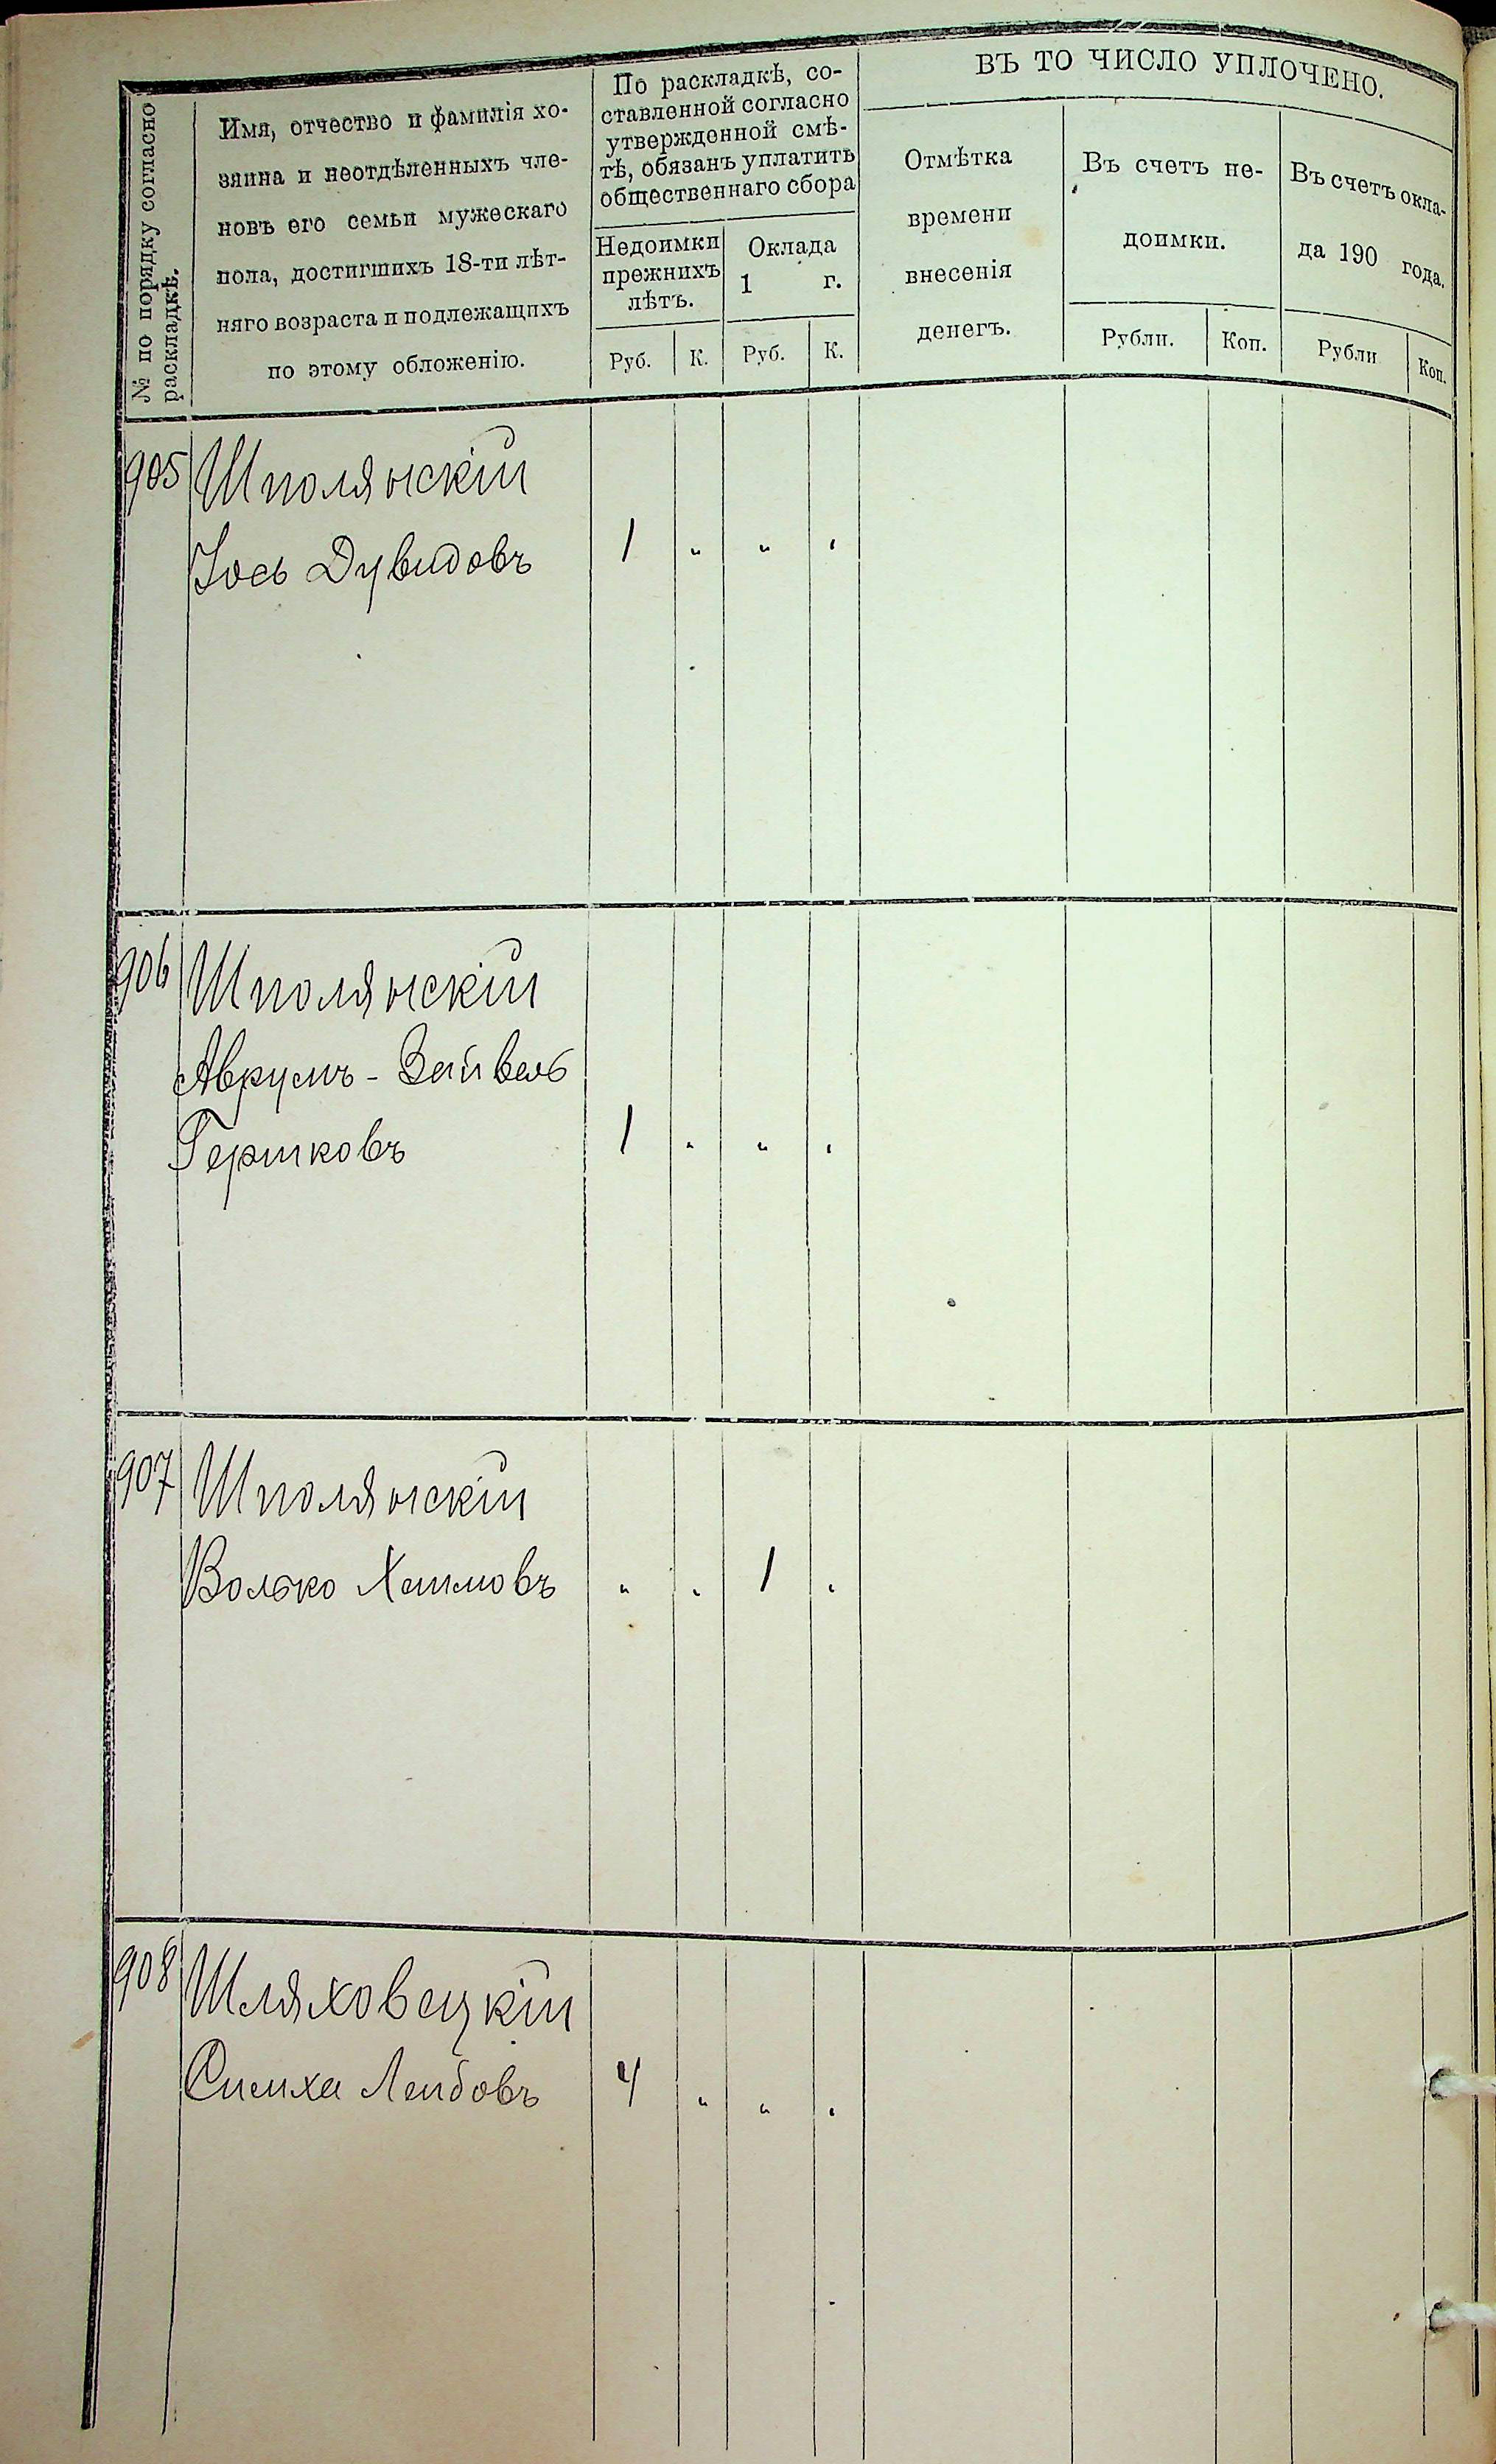 № по порядку согласно
раскладкѣ.
Имя, отчество и фамилія хо-
зяина и неотдѣленныхъ чле-
новъ его семьи мужескаго
пола, достигшихъ 18-ти лѣт-
няго возраста и подлежащихъ
по этому обложенію.
По раскладкѣ, со-
ставленной согласно
утвержденной смѣ-
тѣ, обязанъ уплатить
общественнаго сбора
Недоимки
прежнихъ
лѣтъ.
Оклада
1 г.
Руб. К. Руб. К.
ВЪ ТО ЧИСЛО УПЛОЧЕНО.
Отмѣтка
времени
внесенія
денегъ.
Въ счетъ не-
доимки.
Рубли. Коп.
Въ счетъ окла-
да 190 года.
Рубли Коп.
905 Шполянскій
Іось Дувидовъ 1 " " "
906 Шполянскій
Аврумъ-Зейвель
Гершковъ 1 " " "
907 Шполянскій
Волько Хаимовъ " " 1 "
908 Шляховецкій
Симха Лейбовъ 4 " " "